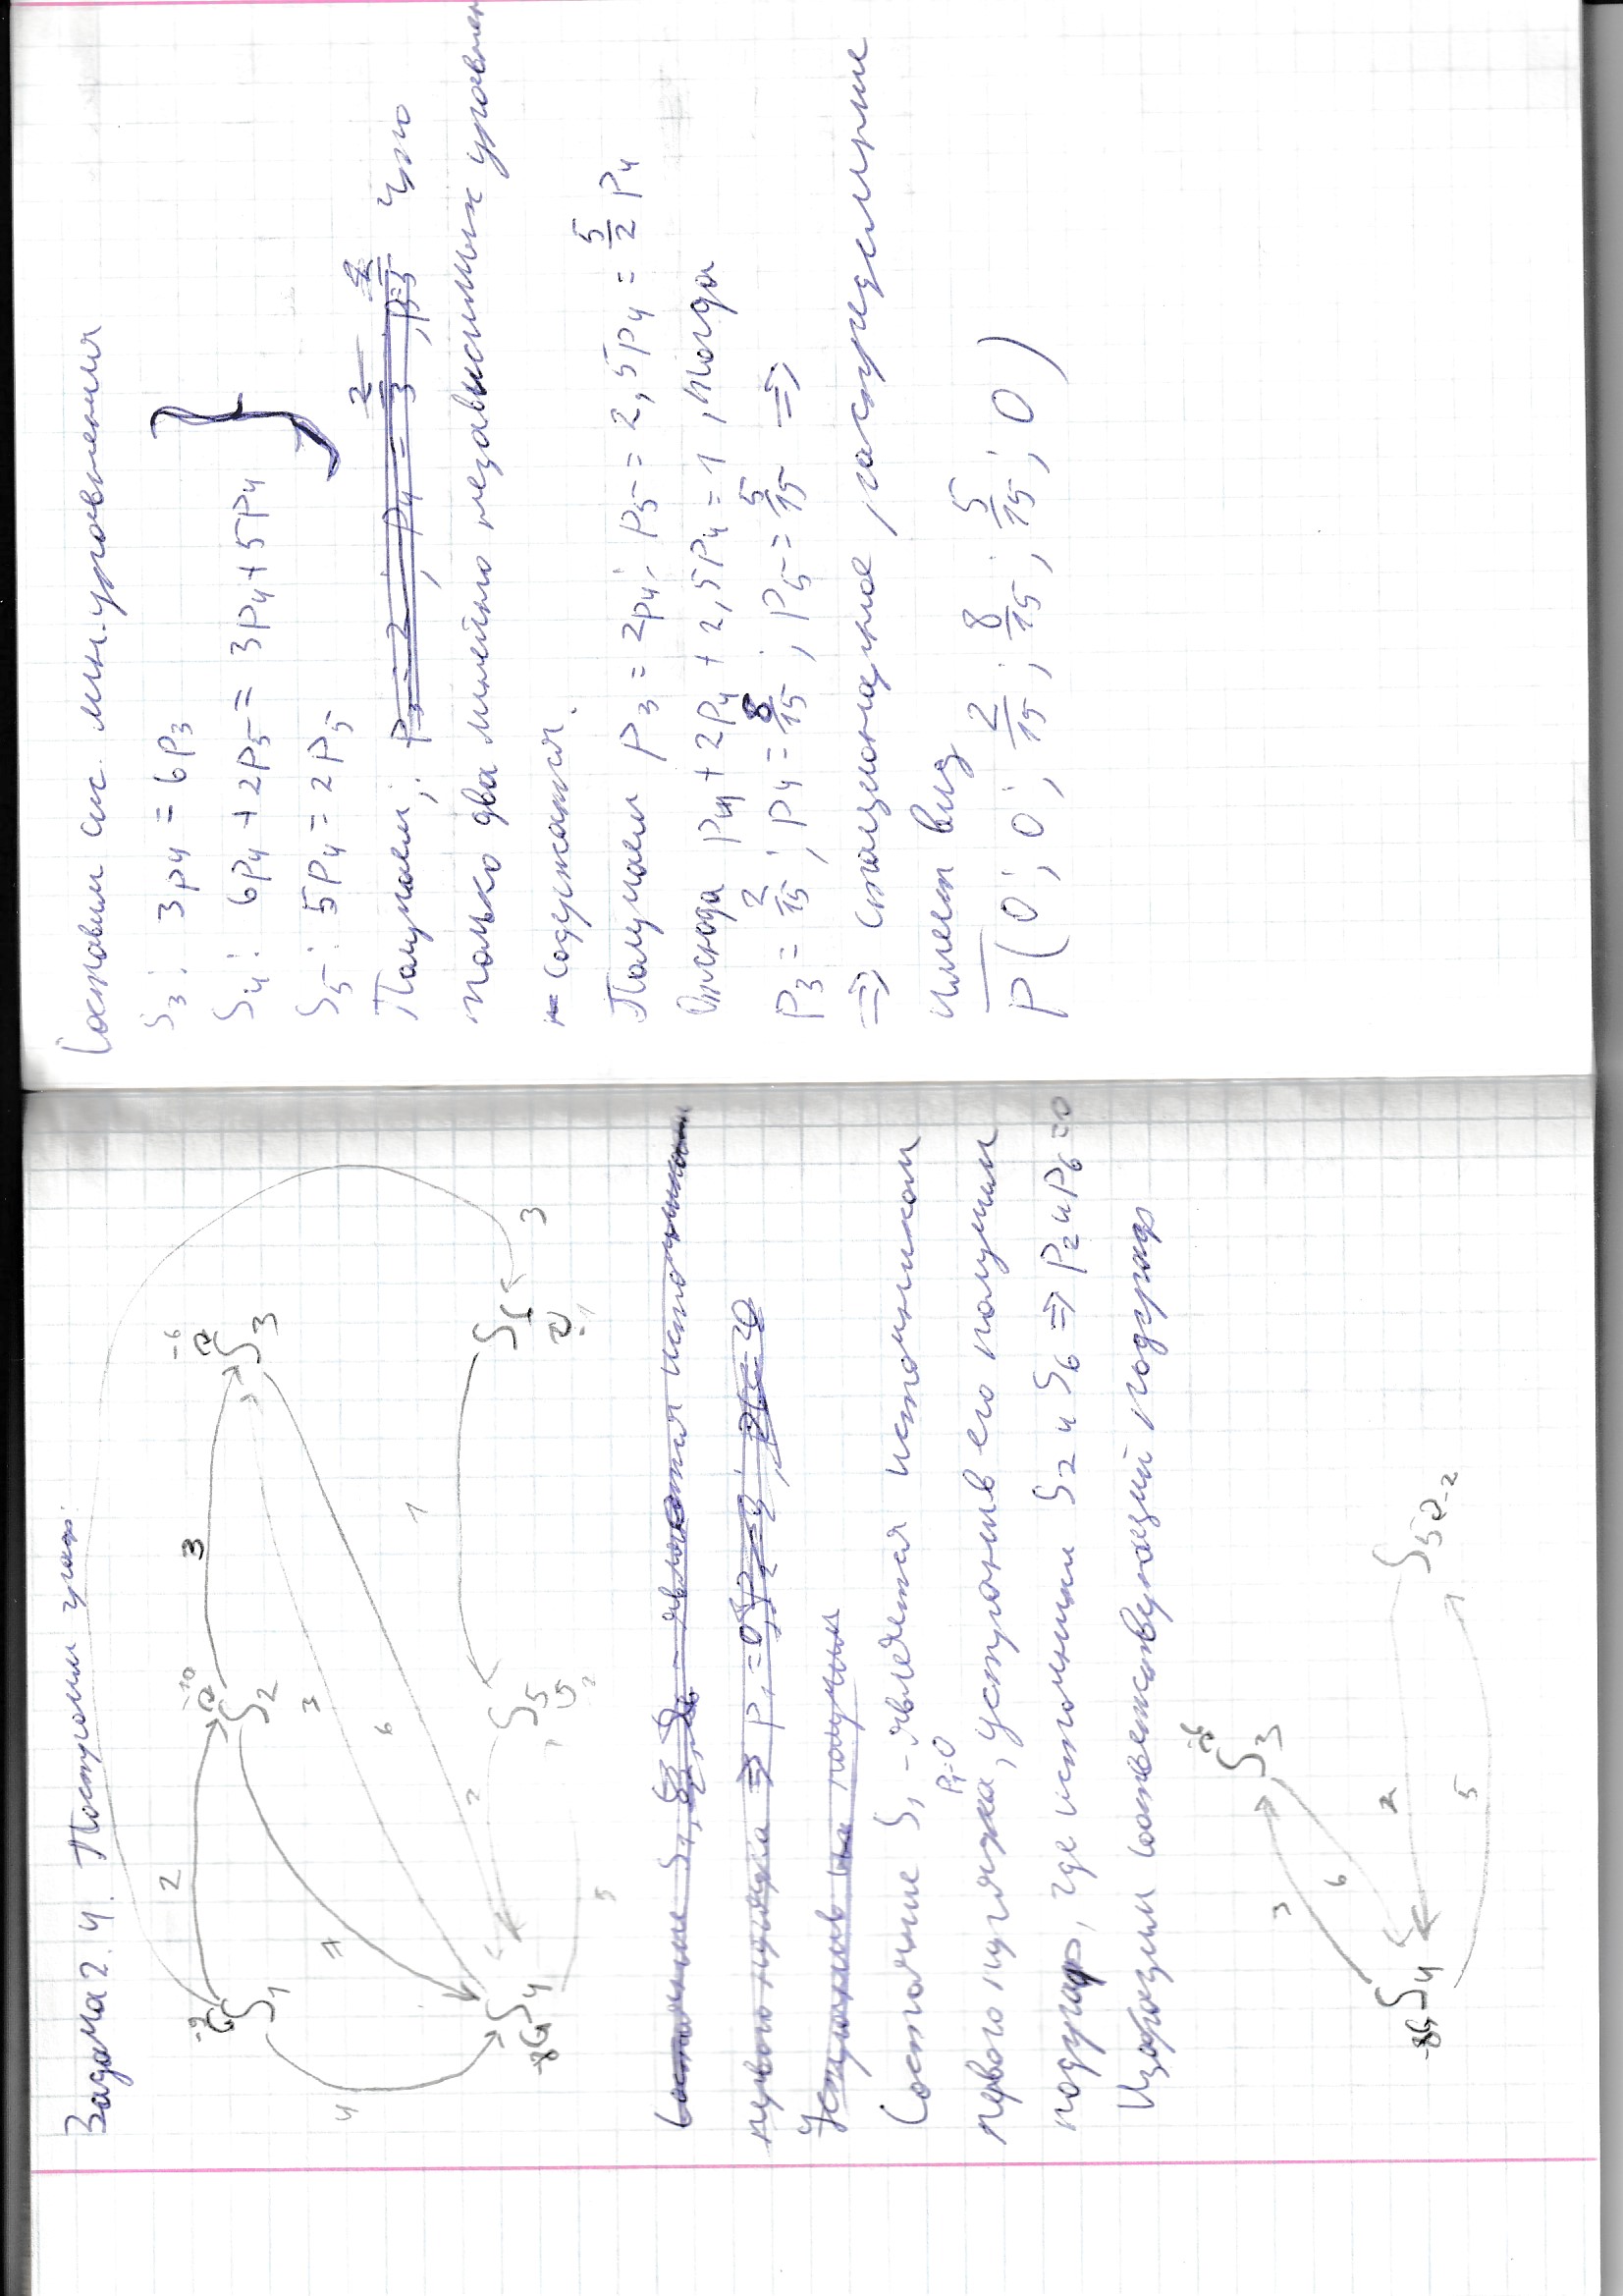 Задача 2.4. Построим граф:
2
3
-9
-10
-6
S1
S2
S3
4
7
3
6
1
2
S4
-8
S5
-2
S6
-1
3
5
Состояние S1, S2, S6 - является источником
первого порядка ⇒ p1 = 0, p2 = 0; p6 = 0
Устранив их получим
Состояние S1 - является источником
p1=0
первого порядка, устранив его получим
подграф, где источники S2 и S6 ⇒ p2 и p6 = 0
Изобразим соответствующий подграф
-6
S3
3
6
S4
-8
2
S5
-2
5
Составим сис. лин. уравнения
S3: 3p4 = 6p3
S4: 6p4 + 2p5 = 3p4 + 5p4
S5: 5p4 = 2p5
Получаем, что
только два линейно независимых уравнен
содержатся.
Получаем p3 = 2p4; p5 = 2,5p4 = 5/2 p4
Отсюда p4 + 2p4 + 2,5p4 = 1, тогда
p3 = 2/15; p4 = 8/15; p5 = 5/15 ⇒
⇒ стационарное распределение
имеет вид
p(0; 0; 2/15; 8/15; 5/15; 0)